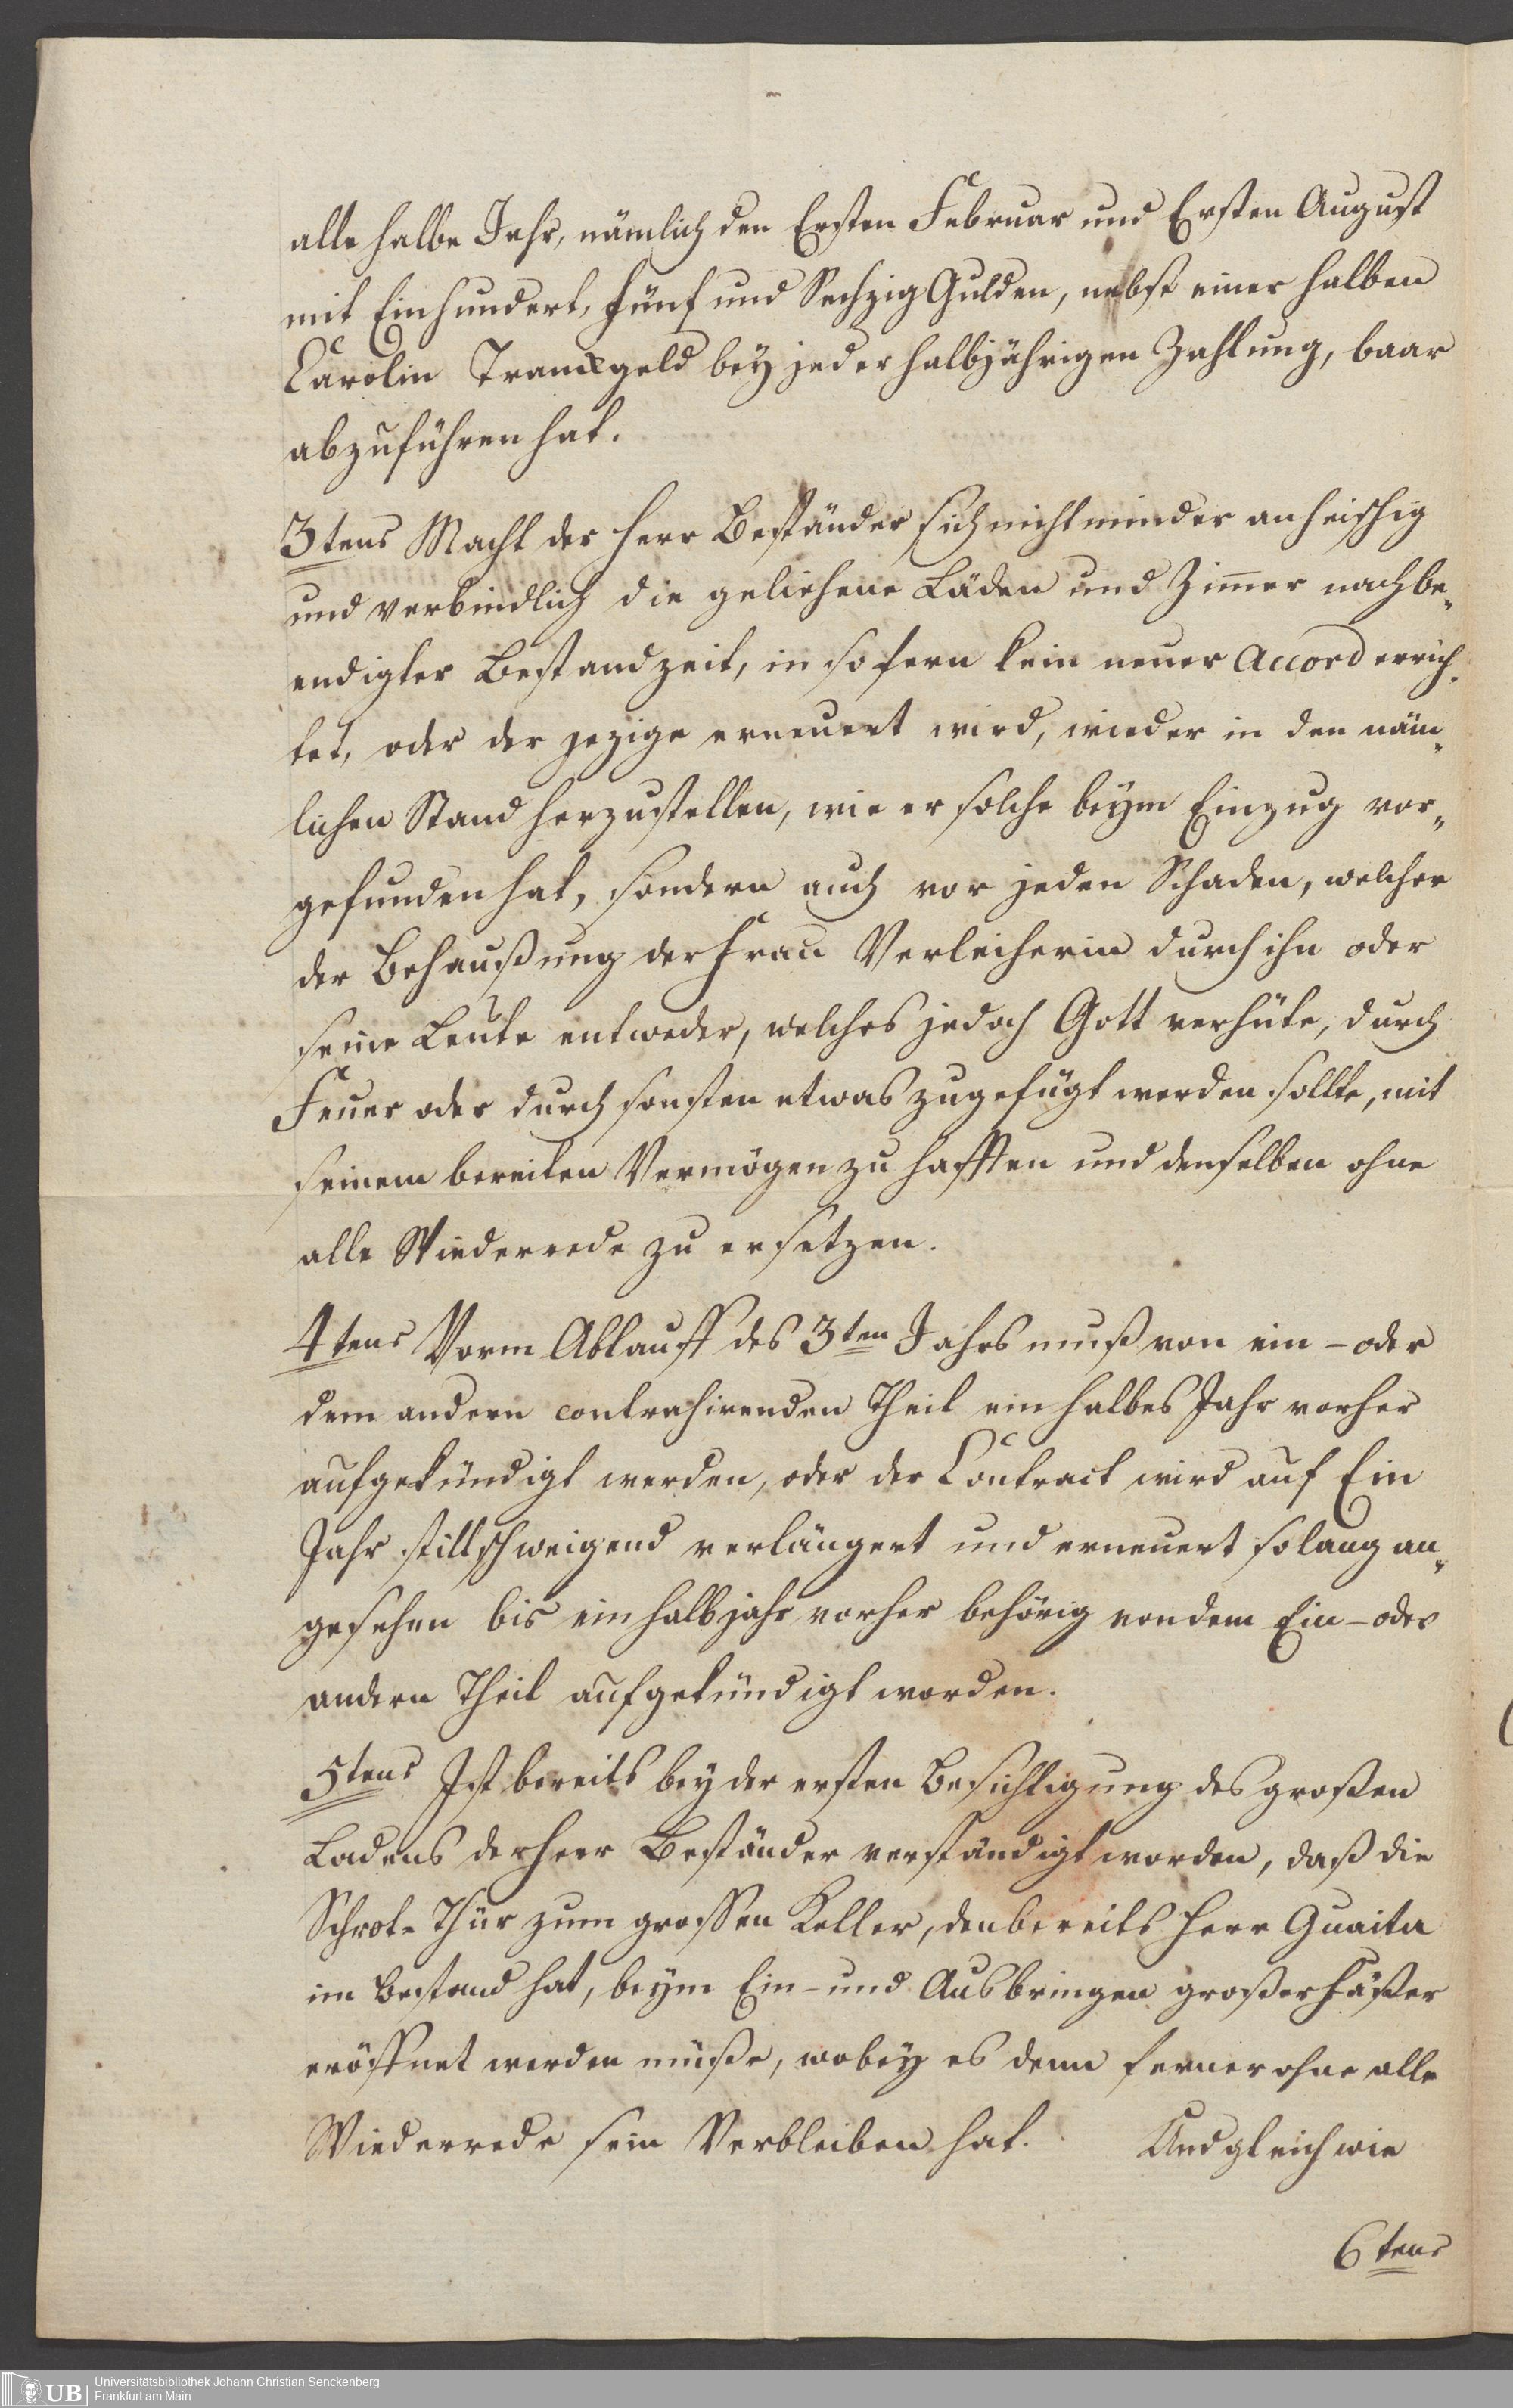 alle halbe Jahr, nämlich den Ersten Februar und Ersten August
mit Einhundert, Fünf und Sechzig Gulden, nebst einer halben
Carolin Tranxgeld bey jeder halbjährigen Zahlung, baar
abzuführen hat.
3tens Macht der Herr Beständer sich nicht minder anheischig
und verbindlich die geliehene Läden und Zimer nach be„
endigter Bestandzeit, in sofern kein neuer Accord errich„
tet, oder der jezige erneuert wird, wieder in den näm„
lichen Stand herzustellen, wie er solche beym Einzug vor„
gefunden hat, sondern auch vor jeden Schaden, welcher
der Behaußung der Frau Verleiherin durch ihn oder
seine Leute entweder, welches jedoch Gott verhüte, durch
Feuer oder durch sonsten etwas zugefügt werden sollte, mit
seinem bereiten Vermögen zu hafften und denselben ohne
alle Wiederrede zu ersetzen.
4tens Vorm Ablauff des 3ten Jahrs muß von ein - oder
dem andern contrahirenden Theil ein halbes Jahr vorher
aufgekündigt werden, oder der Contract wird auf Ein
Jahr stillschweigend verlängert und erneuert solang an„
gesehen bis ein halbjahr vorher behörig von dem Ein - oder
andern Theil aufgekündigt worden.
5tens Ist bereits bey der ersten Besichtigung des großen
Ladens der Herr Beständer verständigt worden, daß die
Schrot-Thür zum grossen Keller, den bereits Herr Guaita
im Bestand hat, beym Ein - und Ausbringen großer Fäßer
eröffnet werden müße, wobey es denn ferner ohne alle
Wiederrede sein Verbleiben hat. Und gleich wie
6tens
UB Universitätsbibliothek Johann Christian Senckenberg
Frankfurt am Main